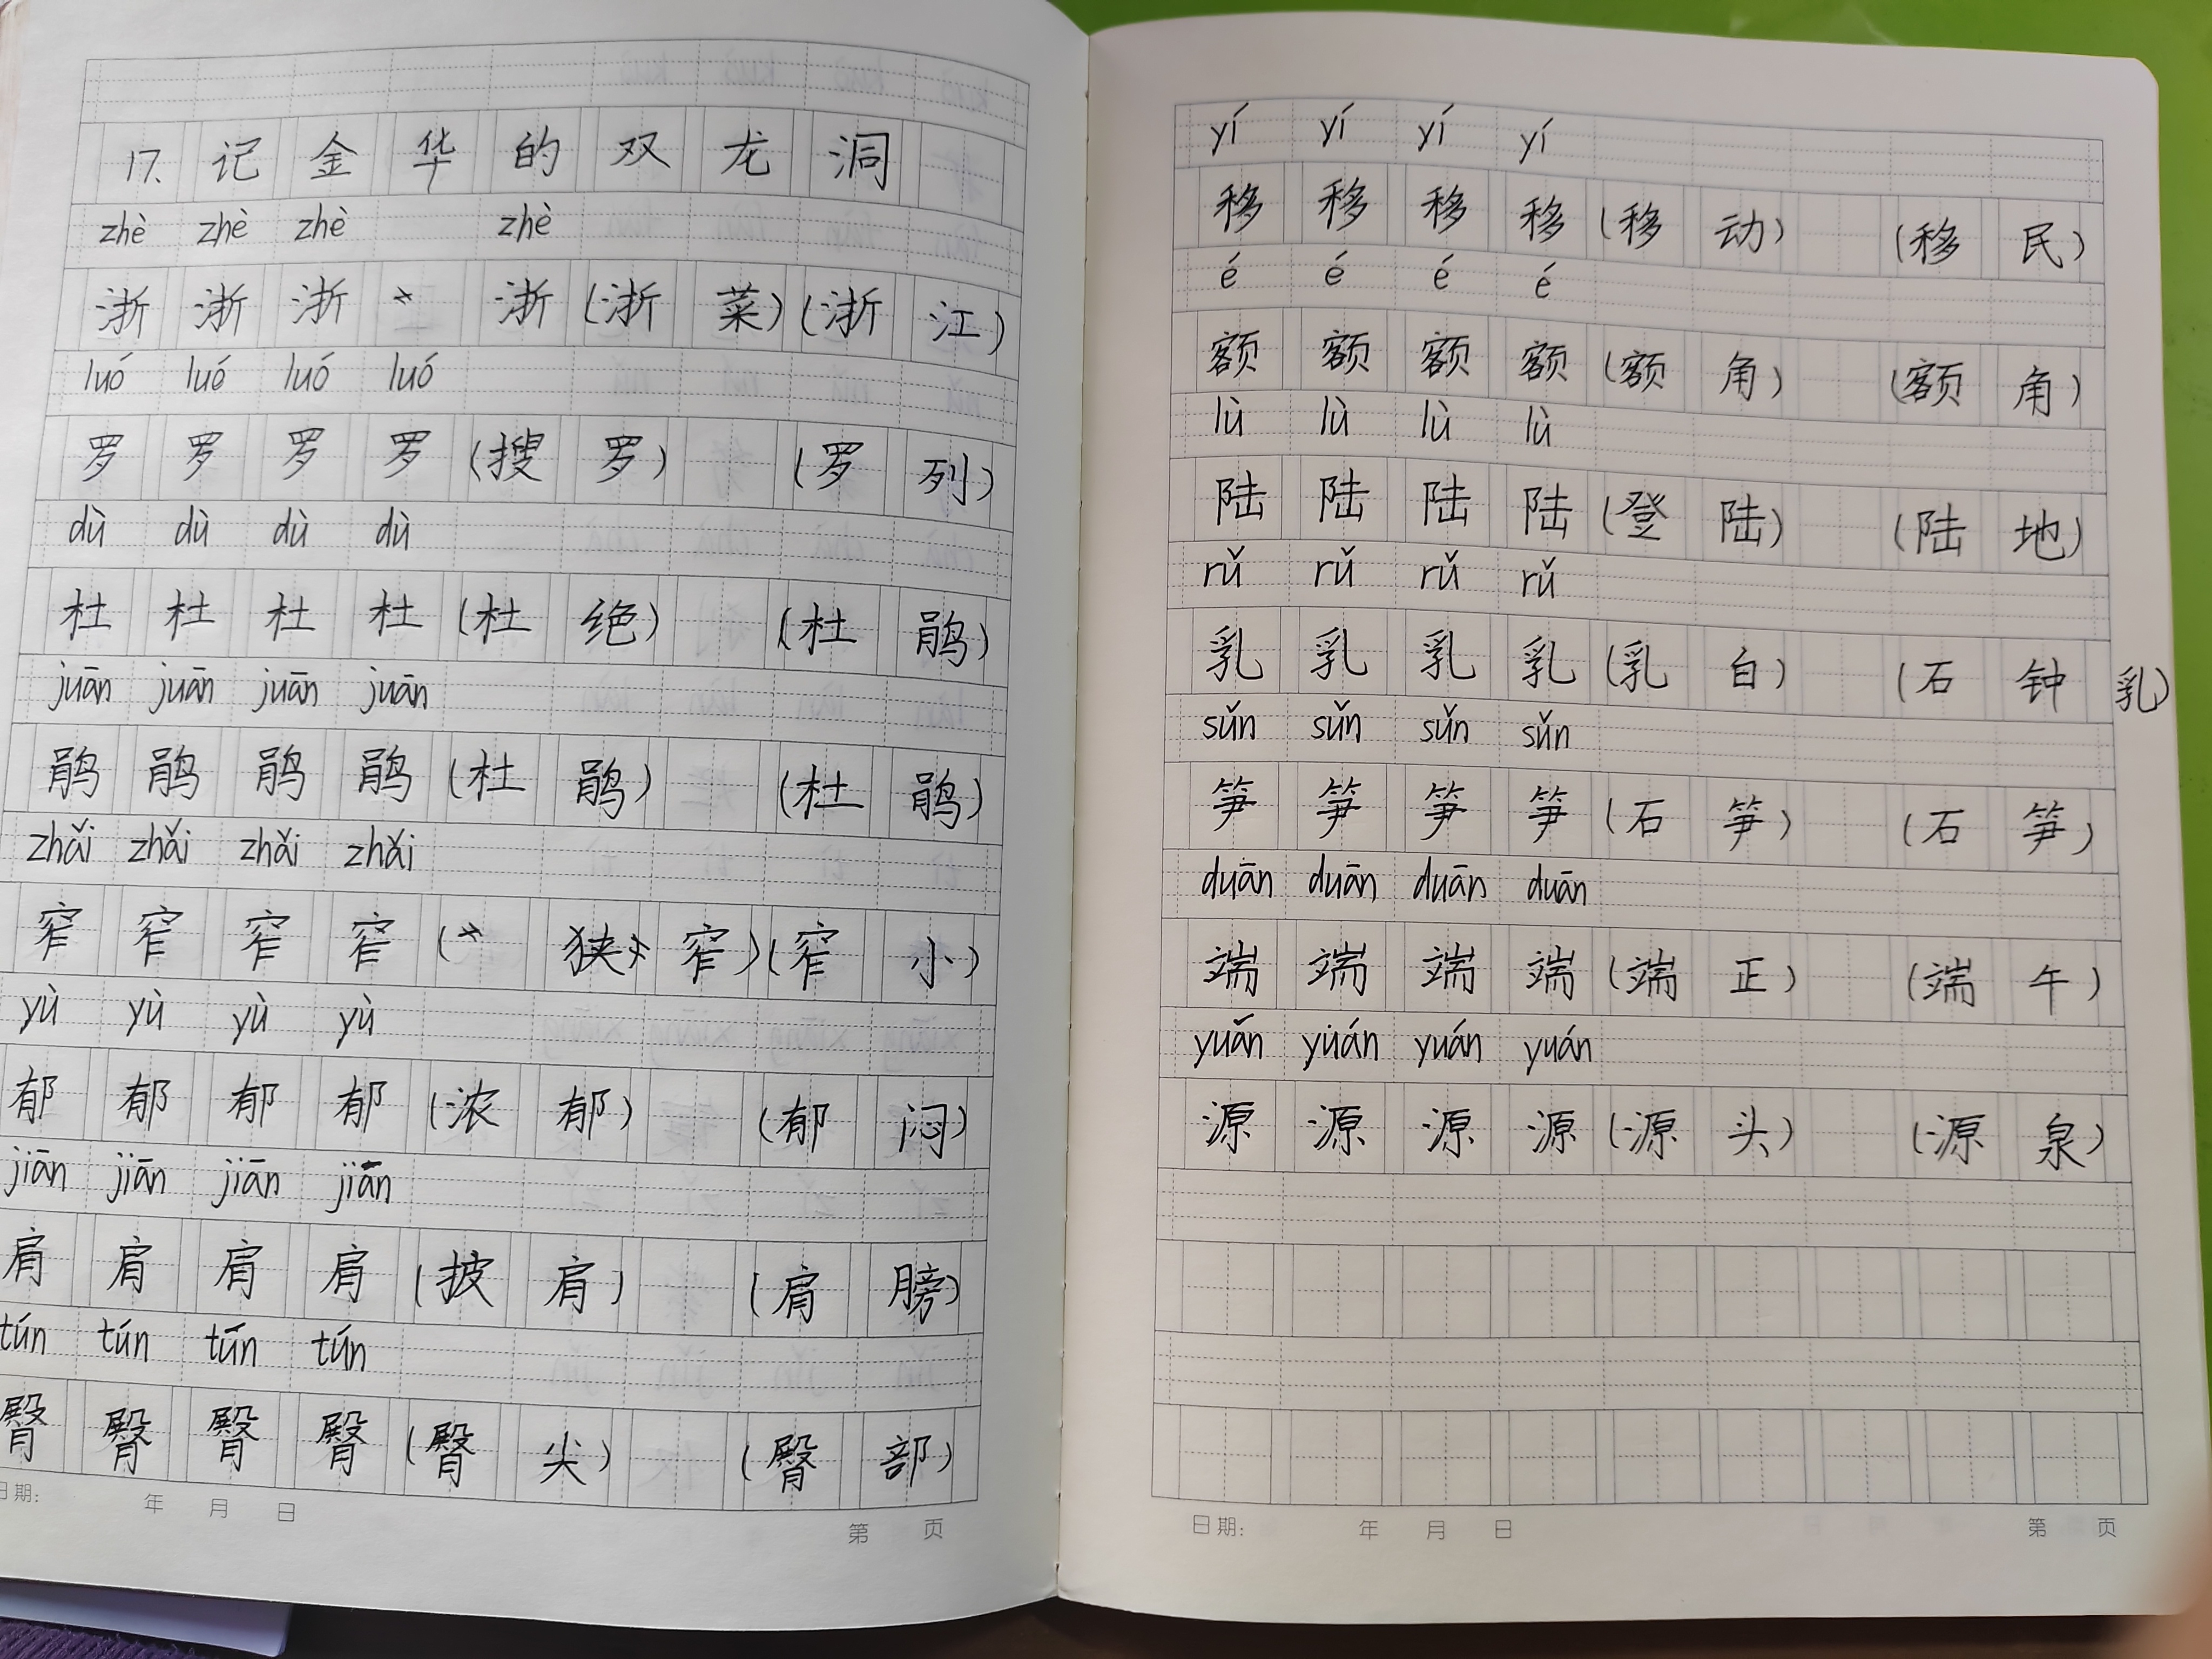 17. 记金华的双龙洞
zhè zhè zhè zhè
浙 浙 浙 浙 (浙菜) (浙江)
luó luó luó luó
罗 罗 罗 罗 (搜罗) (罗列)
dù dù dù dù
杜 杜 杜 杜 (杜绝) (杜鹃)
juān juān juān juān
鹃 鹃 鹃 鹃 (杜鹃) (杜鹃)
zhǎi zhǎi zhǎi zhǎi
窄 窄 窄 窄 (狭窄) (窄小)
yù yù yù yù
郁 郁 郁 郁 (浓郁) (郁闷)
jiān jiān jiān jiān
肩 肩 肩 肩 (披肩) (肩膀)
tún tún tún tún
臀 臀 臀 臀 (臀尖) (臀部)
日期: 年 月 日 第 页
yí yí yí yí
移 移 移 移 (移动) (移民)
é é é é
额 额 额 额 (额角) (额角)
lù lù lù lù
陆 陆 陆 陆 (登陆) (陆地)
rǔ rǔ rǔ rǔ
乳 乳 乳 乳 (乳白) (石钟乳)
sǔn sǔn sǔn sǔn
笋 笋 笋 笋 (石笋) (石笋)
duān duān duān duān
端 端 端 端 (端正) (端午)
yuán yuán yuán yuán
源 源 源 源 (源头) (源泉)
日期: 年 月 日 第 页